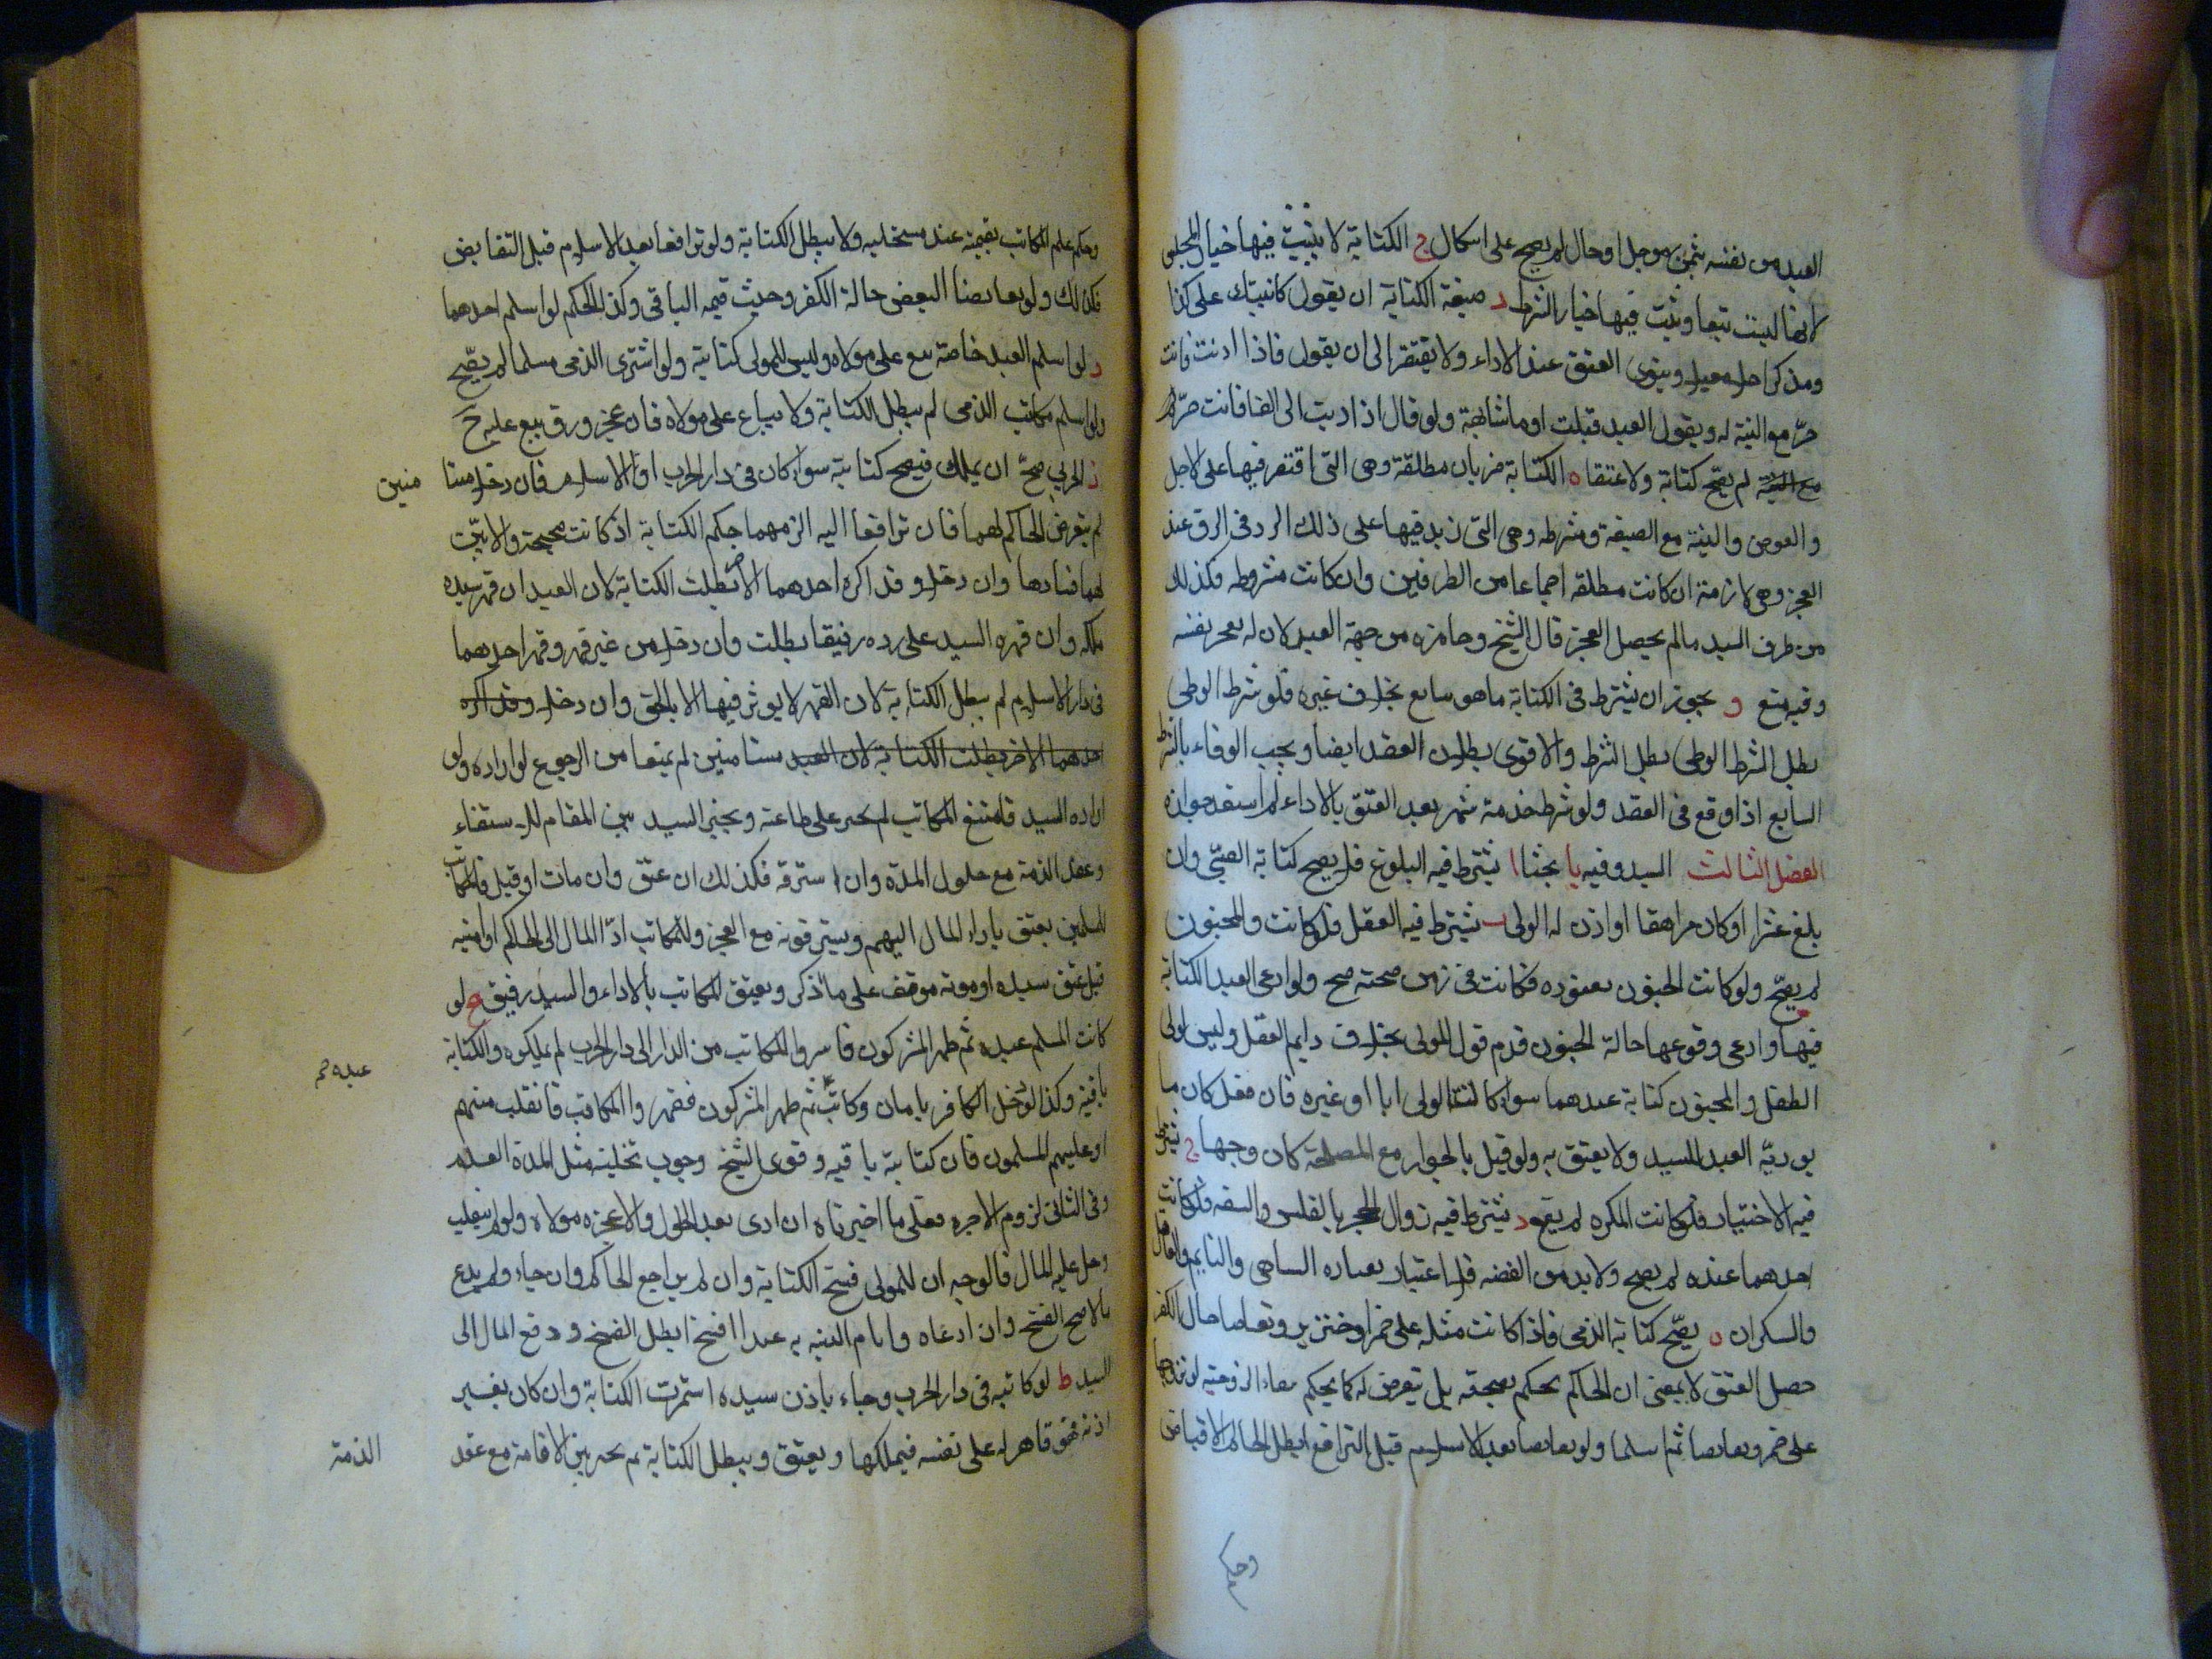 العبد من نفسه بثمن موجل او حال لم يصح على اشكال ج الكتابة لا يثبت فيها خيار المجلس
لانها ليست بيعا ويثبت فيها خيار الشرط د صيغة الكتابة ان يقول كاتبتك على كذا
ويذكر اجله وينوى العتق عند الاداء ولا يفتقر الى ان يقول فاذا اديت فانت
حرّ مع النية له ويقول العبد قبلت او ما شابهة ولو قال اذا اديت الى الفا فانت حرّ
مع النية لم يصحّ كتابة ولا عتقا ه الكتابة ضربان مطلقة وهى التى اقتصر فيها على الاجل
والعوض والنية مع الصيغة ومشرطه وهى التى زيد فيها على ذلك الرد فى الرق عند
العجز وهى لازمة ان كانت مطلقه اجماعا من الطرفين وان كانت مشروطه فكذلك
من طرف السيد مالم يحصل العجز قال الشيخ وجايزه من جهة العبد لان له يعجز نفسه
وفيه منع و يجوز ان يشترط فى الكتابة ما هو سايع بخلاف غيره فلو شرط الوطى
بطل الشرط الوطى بطل الشرط والاقوى بطلان العقد ايضا ويجب الوفاء بالشرط
السايع اذا وقع فى العقد ولو شرط خدمة شهر بعد العتق بالاداء لم استبعد جوازه
الفصل الثالث السيد وفيه يا بحثا ا يشترط فيه البلوغ فلا يصح كتابة الصبّى وان
بلغ عشرا او كان مراهقا او اذن له الولى ب يشترط فيه العقل فلو كاتب المجنون
لم يصحّ ولو كانت الجنون يعتوره فكاتب فى زمن صحته صح ولو ادعى العبد الكتابة
فيها وادعى وقوعها حالة الجنون قدم قول المولى بخلاف دايم العقل وليس لولى
الطفل والمجنون كتابة عبدهما سواء كان الولى ابا او غيره فان فعل كان ما
يوديّه العبد للسيد ولا يعتق به ولو قيل بالجواز مع المصلحة كان وجها ج يشترط
فيه الاختيار فلو كاتب المكره لم يقع د يشترط فيه زوال الحجر بالفلس والسفه فلو كاتب
احدهما عبده لم يصح ولا بد من القصد فلا اعتبار بعباره الساهى والنايم والغافل
والسكران ه يصحّ كتابة الذمى فاذا كاتب مثله على خمر او خنزير وتقابضا حال الكفر
حصل العتق لا بمعنى ان الحاكم يحكم بصحته بل يتعرض له كما يحكم ببقاء الزوجية لو تزوجها
على خمر وتقابضا ثم اسلما ولو تقابضا بعد الاسلام قبل الترافع ابطل الحاكم الاقباض
وحكم
وحكم على المكاتب بقيمته عند مستحليه ولا يبطل الكتابة ولو ترافعا بعد الاسلام قبل التقابض
فكذلك ولو تقابضا البعض حالة الكفر وجبت قيمه الباقى وكذا الحكم لو اسلم احدهما
و لو اسلم العبد خاصة بيع على مولاه وليس للمولى كتابته ولو اشترى الذمى مسلما لم يصّح
ولو اسلم مكاتب الذمى لم يبطل الكتابة ولا يباع على مولاه فان عجز ورق بيع عليه ح
ز الحربى صحّ ان يملك فيصح كتابته سواء كان فى دار الحرب او الاسلام فان دخل مستا
منين
لم يتعرض الحاكم لهما فان ترافعا اليه الزمهما حكم الكتابة اذ كانت صحيحة والا بيّن
لهما فسادها وان دخلا وقد اكره احدهما الاخر بطلت الكتابة لان العبد ان قهر سيده
ملكه وان قهره السيد على رده رقيقا بطلت وان دخلا من غير قهر وقهر احدهما
فى دار الاسلام لم يبطل الكتابة لان القهر لا يوثر فيها الا بالحق وان دخلا وقد اكره
احدهما الاخر بطلت الكتابة لان العبد مستامنين لم يمنعا من الرجوع لو اراده ولو
اراده السيد فامتنع المكاتب لم يجبر على طاعته ويخير السيد بين المقام للاستيفاء
وعقد الذمة مع حلول المدة وان استرقه فكذلك ان عتق وان مات او قتل فالمكاتب
للمسلمين يعتق باداء المال اليهم ويسترقونه مع العجز وللمكاتب ادّا المال الى الحاكم او امينه
قبل عتق سيده او موته موقف على ما ذكر ويعتق المكاتب بالاداء والسيد رقيق ح لو
كاتب المسلم عبده ثم ظهر المشركون فاسروا المكاتب من الدار الى دار الحرب لم يملكوه والكتابة
عبده ثم
باقية وكذا لو دخل الكافر بامان وكاتب ثم ظهر المشركون فقهروا المكاتب فانقلب منهم
او غلبهم المسلمون فان كتابته باقيه وقوى الشيخ وجوب تخليته مثل المدة
وفى الثانى لزوم الاجره فعلى ما اخترناه ان ادى بعد الحلول والا عجزه مولاه ولو لم ينفلت
وحل عليه المال فالوجه ان للمولى فسخ الكتابة وان لم يراجع الحاكم وان جاء ولم يدع
مالا صح الفسخ وان ادعاه واقام البينه به عند الفسخ ابطل الفسخ ودفع المال الى
السيد ط لو كاتبه فى دار الحرب وجاء باذن سيده استمرت الكتابة وان كان بغير
اذنه فهو قاهر له على نفسه فيملكها ويعتق ويبطل الكتابة ثم يخير بين الاقامة مع عقد
الذمة